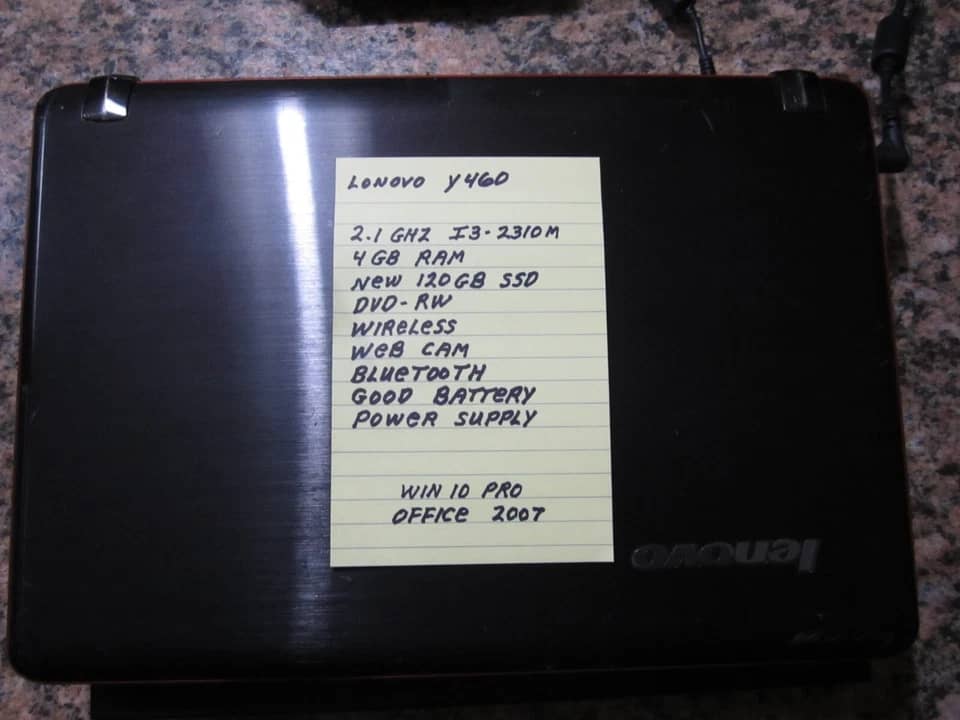 LONOVO Y460
2.1 GHZ I3-2310M
4 GB RAM
NEW 120 GB SSD
DVD-RW
WIRELESS
WEB CAM
BLUETOOTH
GOOD BATTERY
POWER SUPPLY
WIN 10 PRO
OFFICE 2007
lenovo